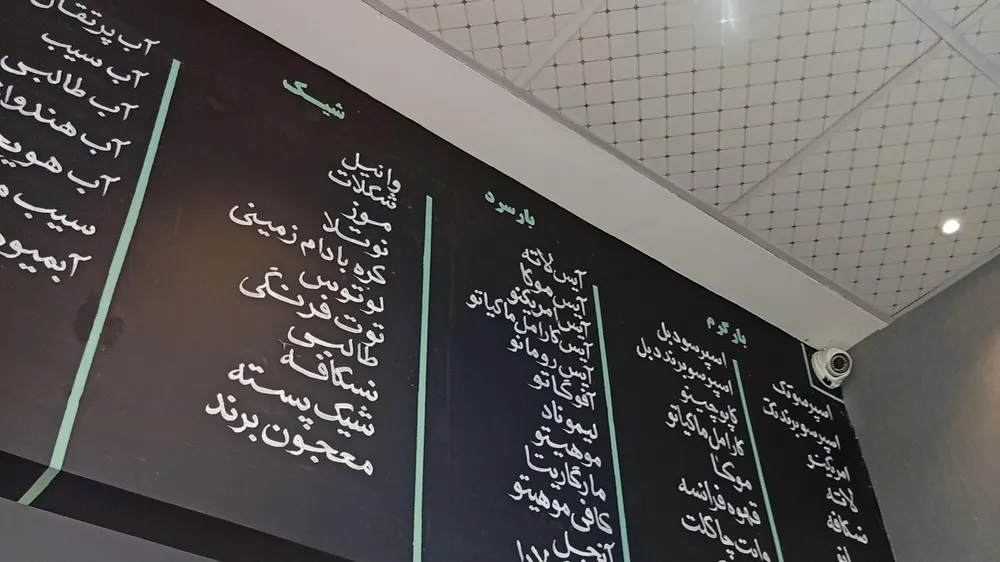 بار گرم
اسپرسو تک
اسپرسو برند تک
امریکنو
لاته
نسکافه
اسپرسو دبل
اسپرسو برند دبل
کاپوچینو
کارامل ماکیاتو
موکا
قهوه فرانسه
وایت چاکلت
بار سرد
آیس لاته
آیس موکا
آیس امریکنو
آیس کارامل ماکیاتو
آیس رومانو
آفوگاتو
لیموناد
موهیتو
مارگاریتا
کافی موهیتو
آنجل
شیک
وانیل
شکلات
موز
نوتلا
کره بادام زمینی
لوتوس
توت فرنگی
طالبی
نسکافه
شیک پسته
معجون برند
آب پرتقال
آب سیب
آب طالبی
آب
آب
سیب